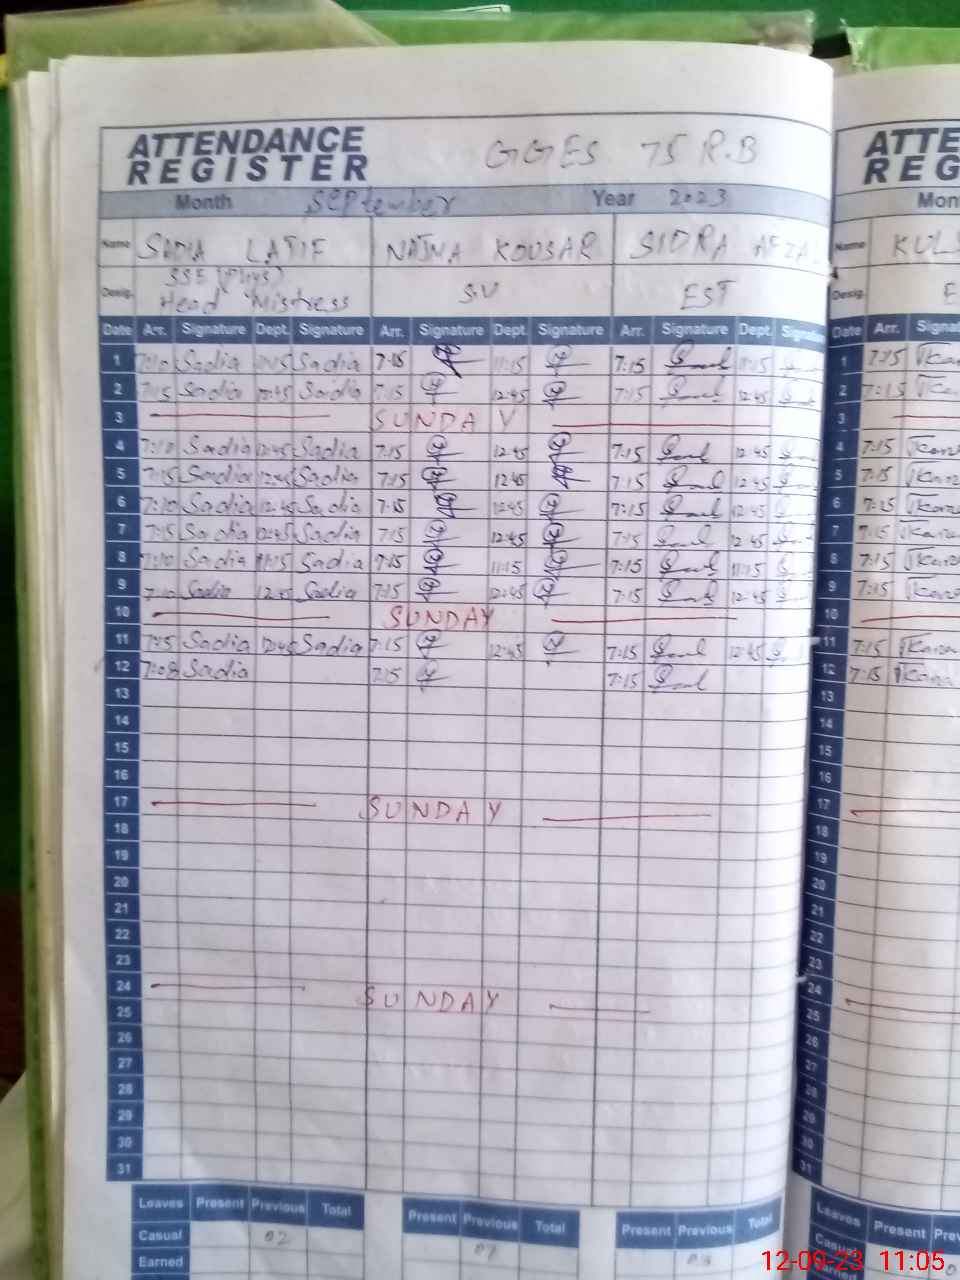 ATTENDANCE REGISTER GGES 75 R.B
Month September Year 2023
Name SADIA LATIF NAJMA KOUSAR SIDRA AFZAL
Desig. SSE (Phys) Head Mistress S.V EST
Date Arr. Signature Dept. Signature Arr. Signature Dept. Signature Arr. Signature Dept. Signature
1 7:10 Sadia 11:15 Sadia 7:15 11:15 7:15 11:15
2 7:15 Sadia 12:45 Sadia 7:15 12:45 7:15 12:45
3 SUNDAY
4 7:10 Sadia 12:45 Sadia 7:15 12:45 7:15 12:45
5 7:15 Sadia 12:45 Sadia 7:15 12:45 7:15 12:45
6 7:10 Sadia 12:45 Sadia 7:15 12:45 7:15 12:45
7 7:15 Sadia 12:45 Sadia 7:15 12:45 7:15 12:45
8 7:10 Sadia 11:15 Sadia 7:15 11:15 7:15 11:15
9 7:10 Sadia 12:45 Sadia 7:15 12:45 7:15 12:45
10 SUNDAY
11 7:15 Sadia 12:45 Sadia 7:15 12:45 7:15 12:45
12 7:08 Sadia 7:15 7:15
13
14
15
16
17 SUNDAY
18
19
20
21
22
23
24 SUNDAY
25
26
27
28
29
30
31
Leaves Present Previous Total Present Previous Total Present Previous Total
Casual 02
Earned
ATTE
REG
Mon
Name KULS
Desig. E
Date Arr. Signat
1 7:15
2 7:15
3
4 7:15
5 7:15
6 7:15
7 7:15
8 7:15
9 7:15
10
11 7:15
12 7:15
13
14
15
16
17
18
19
20
21
22
23
24
25
26
27
28
29
30
31
Leaves Present Prev
Casual
12-09-23 11:05